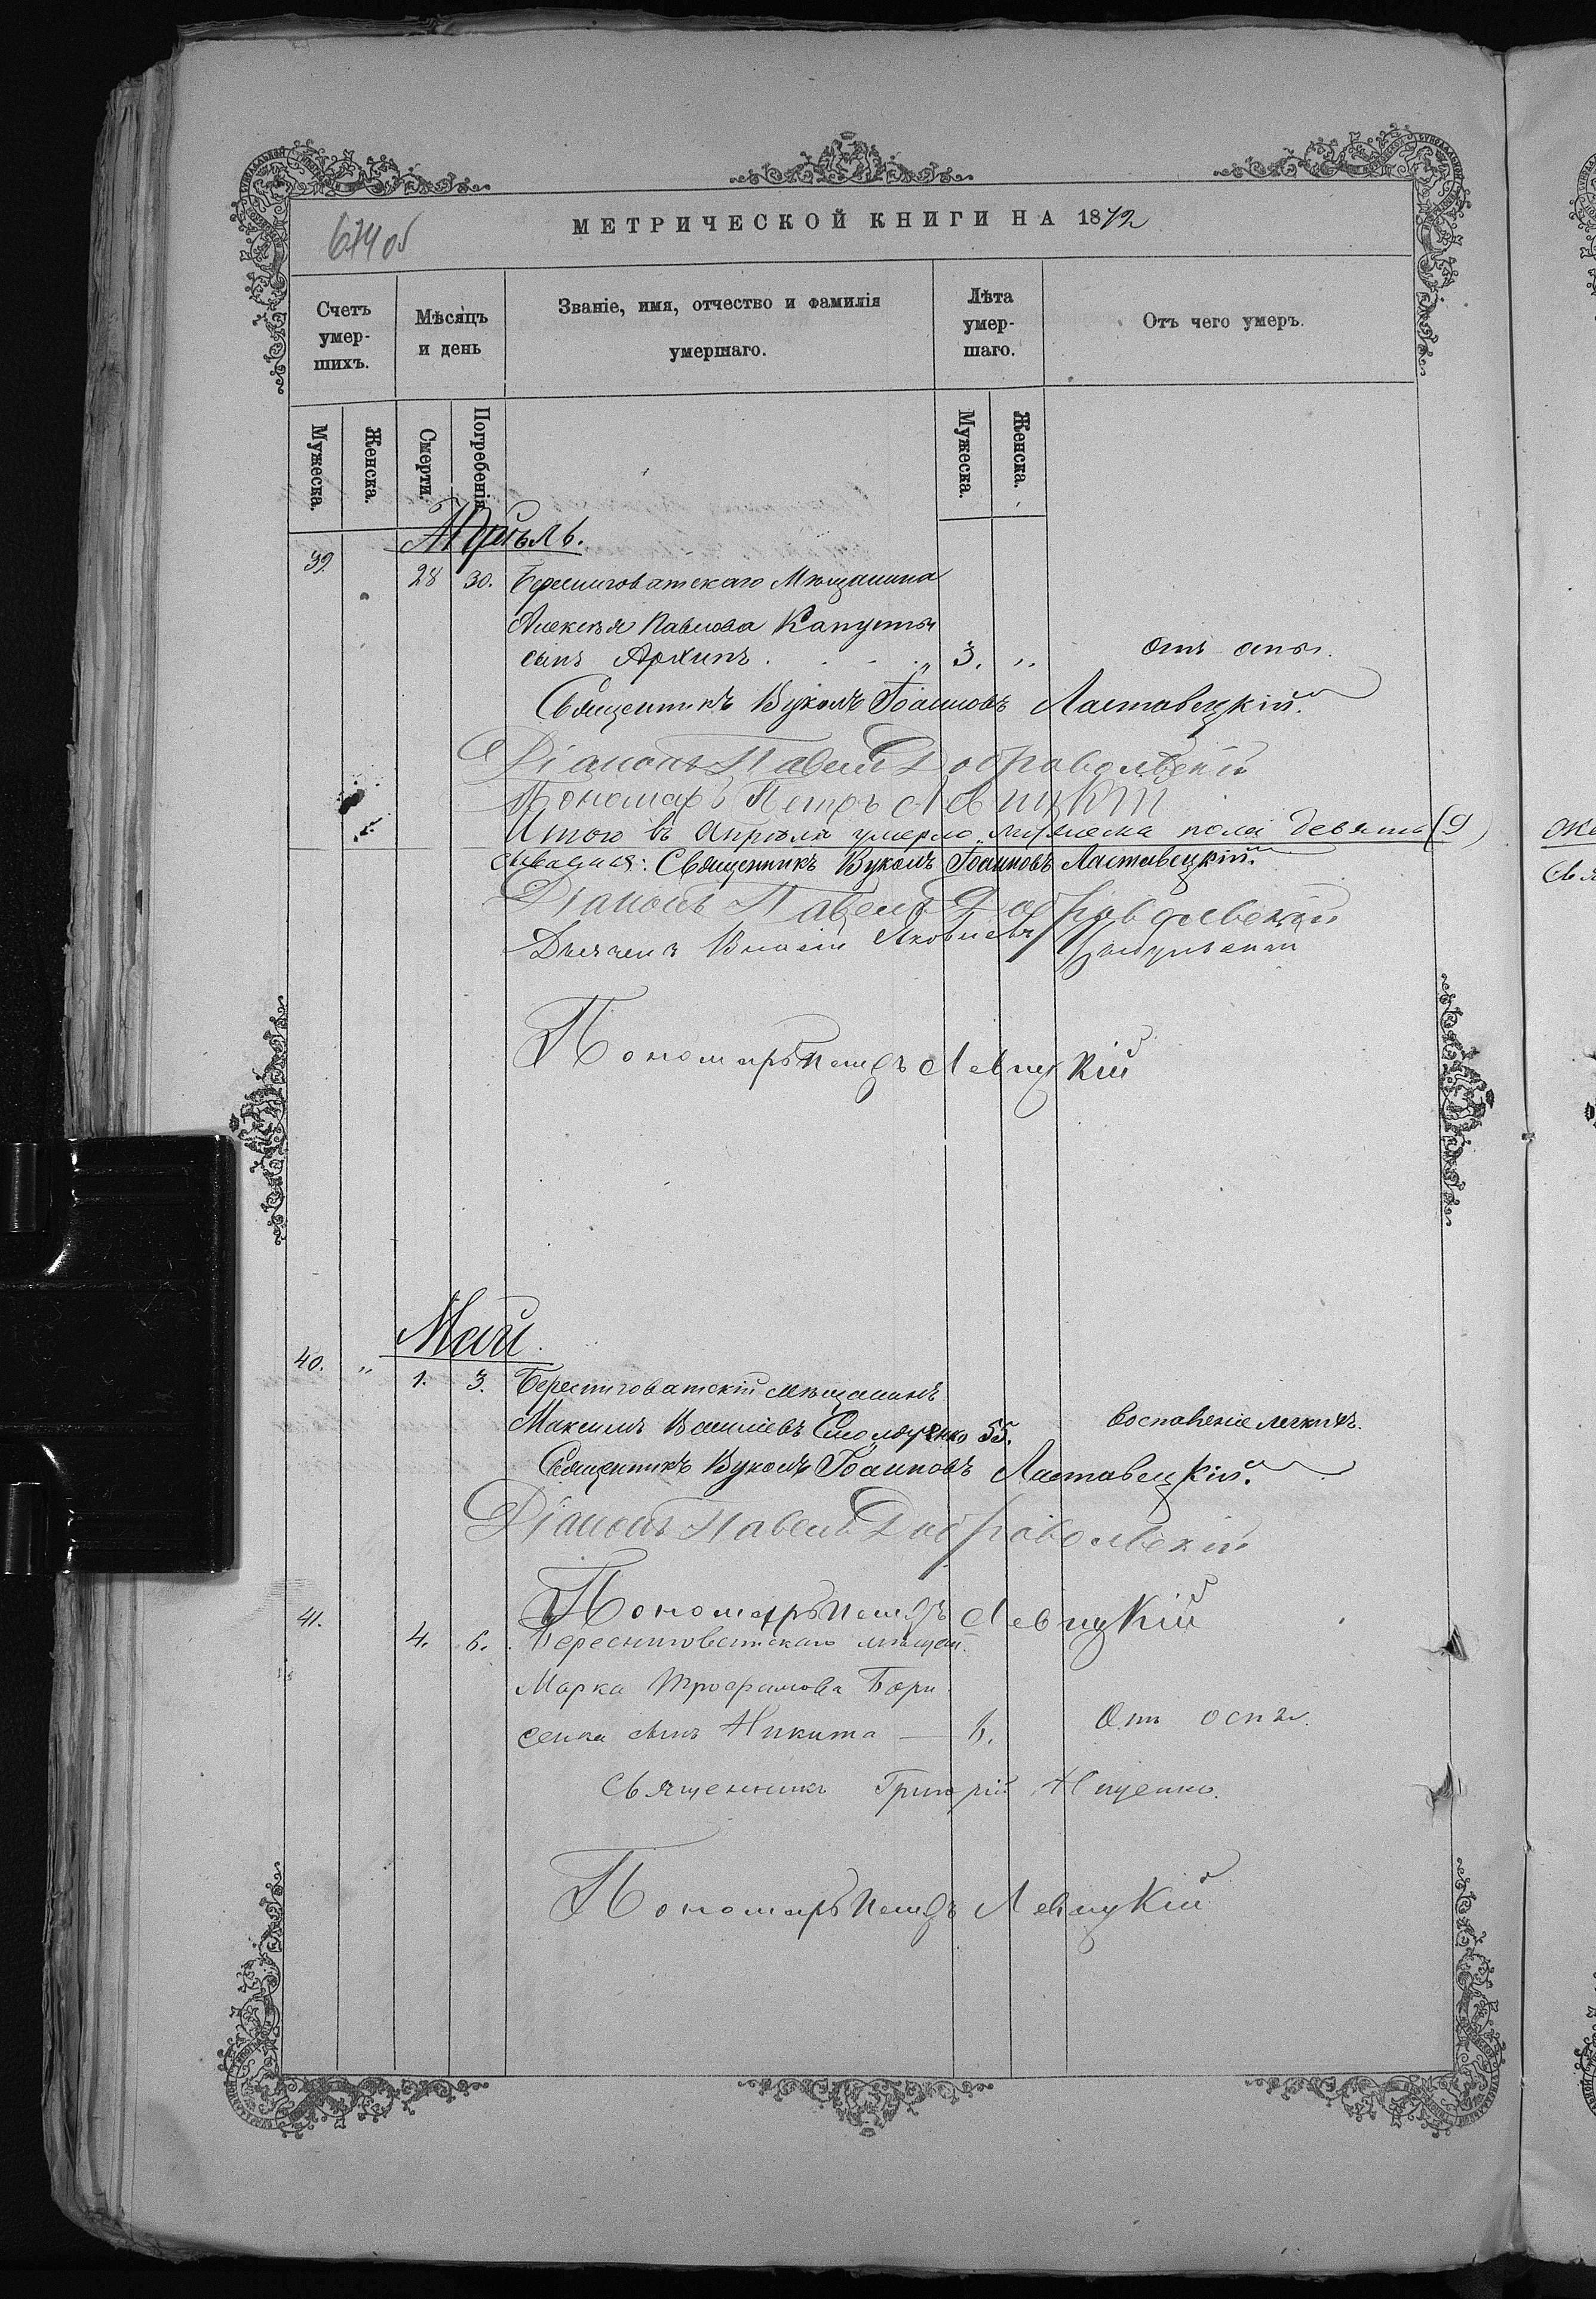 674 об
МЕТРИЧЕСКОЙ КНИГИ НА 1872
Счетъ умер-шихъ.
Мѣсяцъ и день
Званіе, имя, отчество и фамилія умершаго.
Лѣта умер-шаго.
Отъ чего умеръ.
Мужеска.
Женска.
Смерти.
Погребенія
Мужеска.
Женска.
Апрѣль.
39. 28 30. Берестоватскаго Мѣщанина
Алексѣя Павлова Капусты
сынъ Архипъ . . . „ 3. „ отъ оспы.
Священникъ Вуколъ Іоанновъ Ластавецкій.
Діаконъ Павелъ Добровольскій
Пономарь Петръ Левицкій
Итого въ Апрѣлѣ умерло мужеска пола девять (9)
Священникъ Вуколъ Іоанновъ Ластавецкій.
Діаконъ Павелъ Добровольскій
Дьячекъ Яковлевъ
Пономарь Петръ Левицкій
Май.
40. „ 1. 3. Берестоватскій мѣщанинъ
Максимъ 55. воспаленіе легкихъ.
Священникъ Вуколъ Іоанновъ Ластавецкій.
Діаконъ Павелъ Добровольскій
Пономарь Петръ Левицкій
41. 4. 6. Берестоватскаго мѣщан.
Марка Трофимова Бори
сенка сынъ Никита — Отъ оспы.
Священникъ Григорій Ищенко.
Пономарь Петръ Левицкій